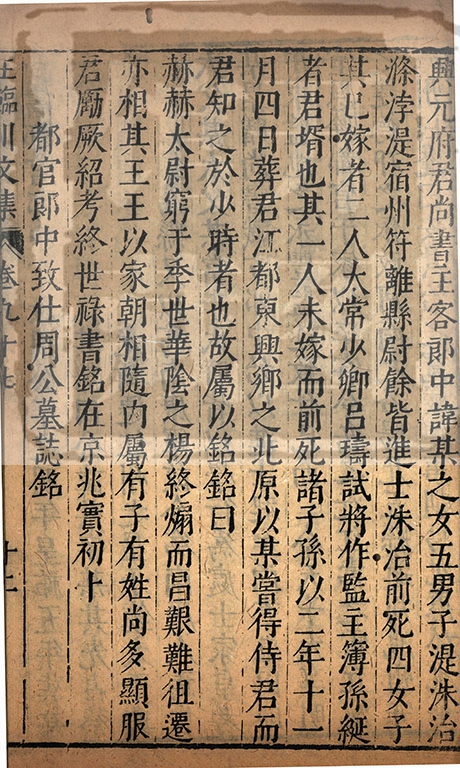 興元府君尚書主客郎中諱某之女五男子湜洙治
滌浡湜宿州符離縣尉餘皆進士洙治前死四女子
其已嫁者二人太常少卿呂璹試將作監主簿孫綖
者君壻也其一人未嫁而前死諸子孫以二年十一
月四日葬君江都東興鄉之北原以某嘗得侍君而
君知之於少時者也故屬以銘銘曰
赫赫太尉窮于季世華陰之楊終煸而昌艱難徂遷
亦相其王王以家朝相隨內屬有子有姓尚多顯服
君勵厥紹考終世祿書銘在京兆實初卜
都官郎中致仕周公墓誌銘
王臨川文集 卷九十七 十二